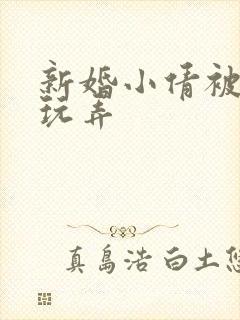 新婚小倩被
玩弄
真島浩 白土悠